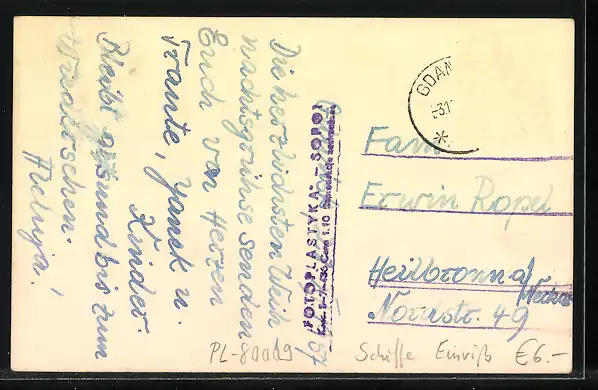 Die herzlichsten Weih
nachtsgrühse senden
Euch von Herzen
Trante, Janek u.
Kinder.
Bleibt gesund bis zum
Wiedersehen.
57
FOTOPLASTYKA - SOPOT
Cena 1.10
GDAN
-3.1
*
Fam
Erwin Ropel
Heilbronn a/
Neckar
Nordstr. 49
PL-80009
Schiffe Einriß €6.-